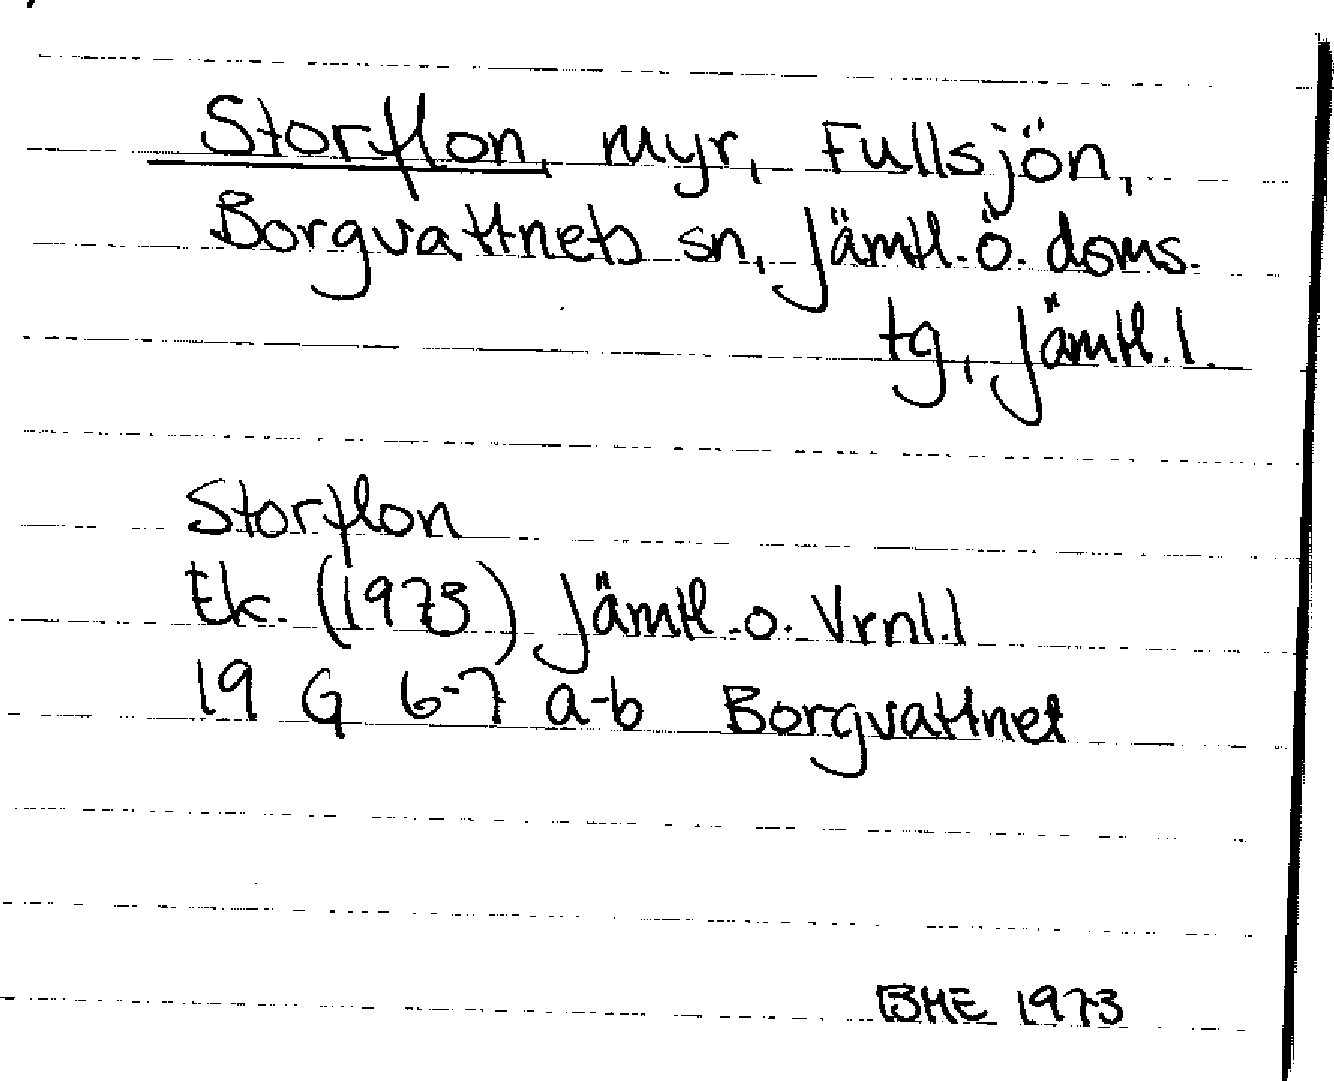 Storflon, myr, Fullsjön,
Borgvattnets sn, Jämtl. ö. doms.
tg, Jämtl. l.
Storflon
Ek. (1973) Jämtl. o. Vrnl. l
19 G 6-7 a-b Borgvattnet
BHE 1973